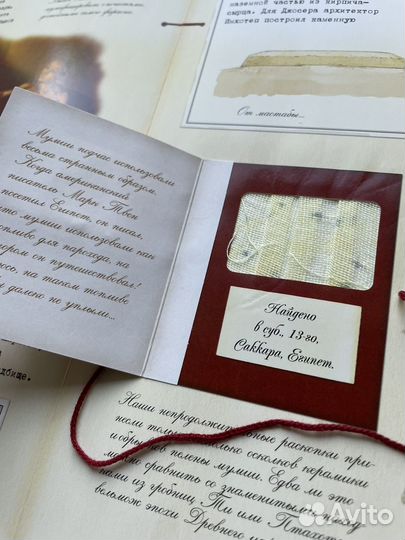 наземной частью из кирпича-
сырца. Для Джосера архитектор
Имхотеп построил каменную
От мастабы...
Мумии подчас использовали
весьма странным образом.
Когда американский
писатель Марк Твен
посетил Египет, он писал,
что мумии использовали как
топливо для парохода, на
котором он путешествовал!
на таком топливе
далеко не уплыть...
Найдено
в суб., 13-го,
Саккара, Египет.
Наши непродолжительные раскопки при-
несли только несколько осколков керамики
и обрывков пелены мумии. Едва ли это
можно сравнить со знаменитыми
ками из гробниц Ти или Птахотепа
вельмож эпохи Древнего
Avito